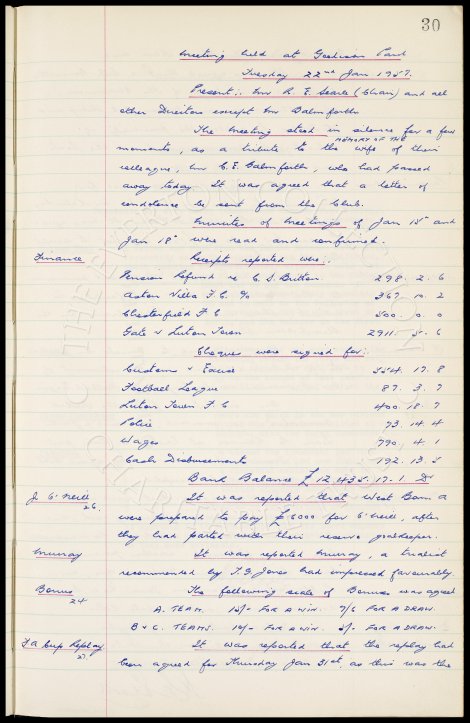 30
Meeting held at Goodison Park
Tuesday 22nd Jan 1957.
Present:. Mr R. E. Searle (Chair) and all
other Directors except Mr Balmforth
The Meeting stood in silence for a few
moments, as a tribute to the MEMORY OF THE wife of their
colleague, Mr C. E. Balmforth, who had passed
away today. It was agreed that a letter of
condolence be sent from the Club.
Minutes of Meetings of Jan 15th and
Jan 18th were read and confirmed.
Finance Receipts reported were:.
Pension Refund re C. S. Britton 298. 2. 6
Aston Villa F.C. 367. 10. 2
Chesterfield F C 500. 0. 0
Gate v Luton Town 2911. 5. 6
Cheques were signed for:.
Customs & Excise 554. 17. 8
Football League 87. 3. 7
Luton Town F C 400. 18. 7
Police 73. 14. 4
Wages 790. 4. 1
Cash Disbursements 192. 13. 5
Bank Balance £12,435. 17. 1
J. O'Neill It was reported that West Brom A
26. were prepared to pay £6000 for O'Neill, after
they had parted with their reserve goalkeeper.
Murray It was reported Murray, a trialist
recommended by T. G. Jones had impressed favourably.
Bonus The following scale of Bonuses was agreed
24 A. TEAM. 15/- FOR A WIN. 7/6 FOR A DRAW.
B & C. TEAMS. 10/- FOR A WIN. 5/- FOR A DRAW.
F A Cup Replay It was reported that the replay had
27. been agreed for Thursday Jan 31st, as this was the